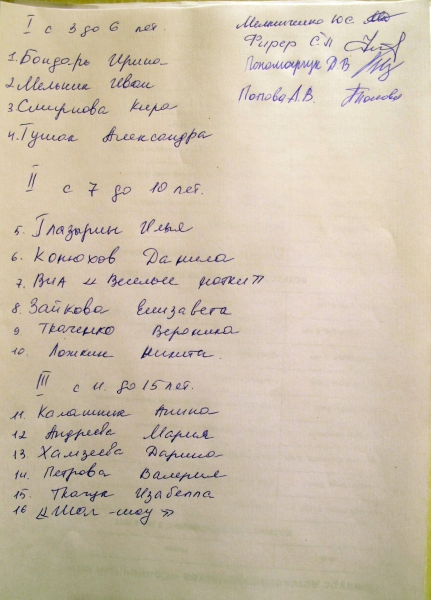 I с 3 до 6 лет.
1. Бондарь Ирина
2. Мельник Иван
3. Смирнова Кира
4. Гушак Александра
Мельниченко Ю.С.
Фирер С.Л
Пономарчук Д.В
Попова А.В. Попова
II с 7 до 10 лет.
5. Глазырин Илья
6. Конюхов Данила
7. ВИА "Веселые нотки"
8. Зайкова Елизавета
9. Ткаченко Вероника
10. Ложкин Никита.
III с 11. до 15 лет.
11. Калашник Алина
12 Андреева Мария
13. Хамзеева Дарина
14. Петрова Валерия
15. Ткачук Изабелла
16 "Шал-шоу"